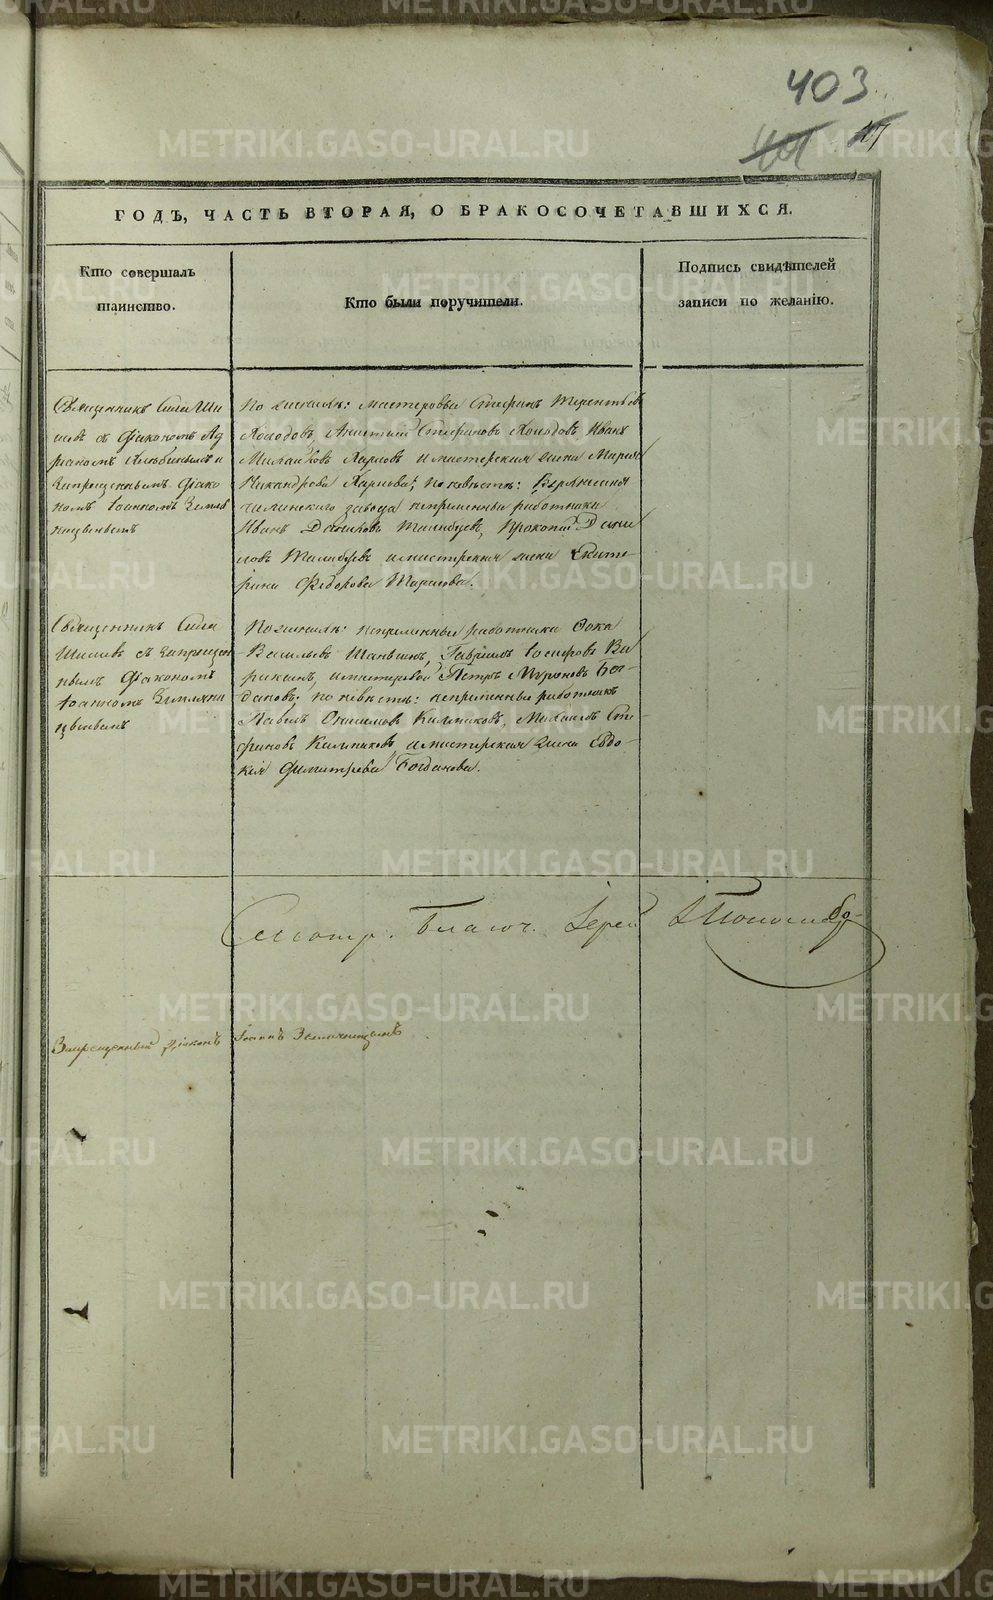 403
401 17
ГОДЪ, ЧАСТЬ ВТОРАЯ, О БРАКОСОЧЕТАВШИХСЯ.
Кто совершалъ
таинство.
Кто были поручители.
Подпись свидѣтелей
записи по желанію.
Священникъ Сила Ши
шевъ съ Діакономъ Ад
ріаномъ и
Запрещеннымъ Діако
номъ Іоанномъ Земля
ницынымъ
По женихѣ: мастеровые Стефанъ Терентьевъ
Холодовъ, Стефановъ Холодовъ, Иванъ
Михайловъ Карповъ и мастерская жена Марья
Никандрова Карпова; по невѣстѣ:
завода непременные работники
Иванъ Даниловъ Прокопій Дани
ловъ и мастерская жена Екате
рина Федорова Тарасова.
Священникъ Сила
Шишевъ съ Запрещен
нымъ Діакономъ
Іоанномъ Земляни
цынымъ
По женихѣ: непременные работники Фока
Васильевъ Гавріилъ Іосифовъ
и мастеровой Петръ Мироновъ Бог
дановъ; по невѣстѣ: непременные работники
Павелъ Онисимовъ Калпиковъ, Михаилъ Сте
фановъ Калпиковъ и мастерская жена Евдо-
кія Димитрева Богданова.
Смотр. Благоч. Іерей
Запрещенный Діаконъ Іоаннъ Земляницынъ
METRIKI.GASO-URAL.RU